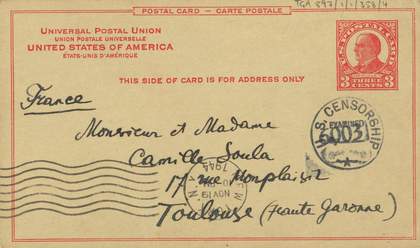 TGA 897/1/1/358/4
POSTAL CARD – CARTE POSTALE
UNIVERSAL POSTAL UNION
UNION POSTALE UNIVERSELLE
UNITED STATES OF AMERICA
ÉTATS-UNIS D'AMÉRIQUE
THIS SIDE OF CARD IS FOR ADDRESS ONLY
3 THREE CENTS 3
France
Monsieur et Madame
Camille Soula
17 rue Monplaisir
Toulouse (Haute Garonne)
U.S. CENSORSHIP
EXAMINED
6003
NOV 19
1944